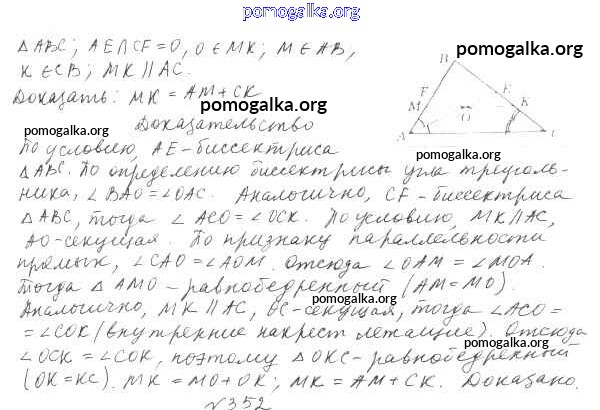 pomogalka.org
△ABC; AE∩CF=O, O∈MK; M∈AB,
pomogalka.org
K∈CB; MK∥AC.
B
F
E
M
K
O
A
C
Доказать: MK = AM+CK
pomogalka.org
pomogalka.org
Доказательство
По условию, AE-биссектриса
pomogalka.org
△ABC. По определению биссектрисы угла треуголь-
ника, ∠BAO=∠OAC. Аналогично, CF-биссектриса
pomogalka.org
△ABC, тогда ∠ACO=∠OCK. По условию, MK∥AC,
AO-секущая. По признаку параллельности
прямых, ∠CAO=∠AOM. Отсюда ∠OAM=∠MOA.
Тогда △AMO-равнобедренный (AM=MO).
pomogalka.org
Аналогично, MK∥AC, OC-секущая, тогда ∠ACO=
=∠COK (внутренние накрест лежащие). Отсюда
pomogalka.org
∠OCK=∠COK, поэтому △OKC-равнобедренный
(OK=KC). MK=MO+OK; MK=AM+CK. Доказано.
pomogalka.org
№352